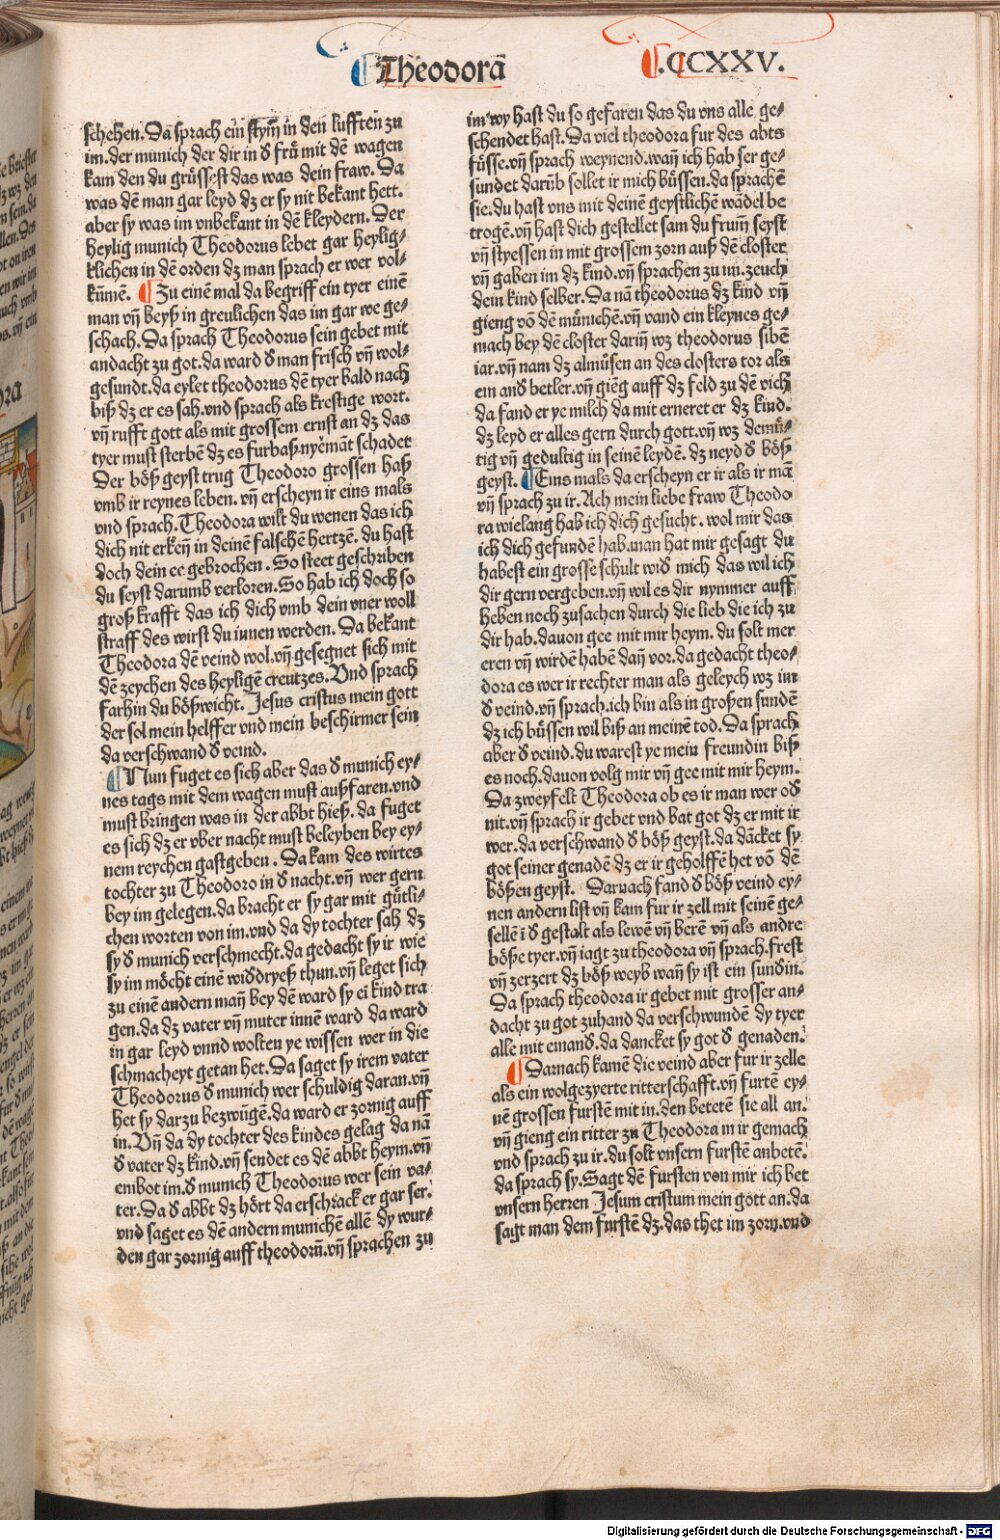 Theodorā
.CCXXV.
schehen. Da sprach ein stym̄ in den lufften zu
im. der munich der dir in ð frů mit dē wagen
kam den du grüssest das was dein fraw. Da
was dē man gar leyd dz er sy nit bekant hett.
aber sy was im vnbekant in dē kleydern. Der
heylig munich Theodorus lebet gar heylig⸗
klichen in dē orden dz man sprach er wer vol⸗
kūmē. Zu einē mal da begriff ein tyer einē
man vn̄ beyß in greulichen das im gar we ge⸗
schach. Da sprach Theodorus sein gebet mit
andacht zu got. da ward ð man frisch vn̄ wol⸗
gesundt. da eylet theodorus dē tyer bald nach
biß dz er es sah. vnd sprach als krestige wort.
vn̄ rufft gott als mit grossem ernst an dz das
tyer must sterbē dz es furbaß nyēmāt schadet
Der böß geyst trug Theodoro grossen haß
vmb ir reynes leben. vn̄ erscheyn ir eins mals
vnd sprach. Theodora wilt du wenen das ich
dich nit erken̄ in deinē falschē hertzē. du hast
doch dein ee gebrochen. So steet geschriben
du seyst darumb verloren. So hab ich doch so
groß krafft das ich dich vmb dein vner woll
straff des wirst du innen werden. Da bekant
Theodora dē veind wol. vn̄ gesegnet sich mit
dē zeychen des heyligē creutzes. Vnd sprach
Farhin du bößwicht. Jesus cristus mein gott
der sol mein helffer vnd mein beschirmer sein
da verschwand ð veind.
Nun fuget es sich aber das ð munich ey⸗
nes tags mit dem wagen must außfaren. vnd
must bringen was in der abbt hieß. da fuget
es sich dz er vber nacht must beleyben bey ey⸗
nem reychen gastgeben. Da kam des wirtes
tochter zu Theodoro in ð nacht. vn̄ wer gern
bey im gelegen. da bracht er sy gar mit gütli⸗
chen worten von im. vnd da dy tochter sah dz
sy ð munich verschmecht. da gedacht sy ir wie
sy im möcht einē widdryeß thun. vn̄ leget sich
zu einē andern man̄ bey dē ward sy ei kind tra
gen. da dz vater vn̄ muter innē ward da ward
in gar leyd vnnd wolten ye wissen wer in die
schmacheyt getan het. Da saget sy irem vater
Theodorus ð munich wer schuldig daran. vn̄
het sy darzu bezwūgē. da ward er zornig auff
in. Vn̄ da dy tochter des kindes gelag da nā
ð vater dz kind. vn̄ sendet es dē abbt heym. vn̄
embot im. ð munich Theodorus wer sein va⸗
ter. Da ð abbt dz hört da erschrack er gar ser.
vnd saget es dē andern munichē allē dy wur⸗
den gar zornig auff theodorū. vn̄ sprachen zu
im wy hast du so gefaren das du vns alle ge⸗
schendet hast. Da viel theodora fur des abts
füsse. vn̄ sprach weynend. wan̄ ich hab ser ge⸗
sundet darūb sollet ir mich büssen. da sprachē
sie. du hast vns mit deinē geystlichē wādel be
trogē. vn̄ hast dich gestellet sam du frum̄ seyst
vn̄ styessen in mit grossem zorn auß dē closter
vn̄ gaben im dz kind. vn̄ sprachen zu im. zeuch
dein kind selber. Da nā theodorus dz kind vn̄
gieng vō dē münichē. vn̄ vand ein kleynes ge⸗
mach bey dē closter darin̄ wz theodorus sibē
iar. vn̄ nam dz almūsen an des closters tor als
ein and̄ betler. vn̄ giēg auff dz feld zu dē vich
da fand er ye milch da mit erneret er dz kind.
dz leyd er alles gern durch gott. vn̄ wz demü⸗
tig vn̄ gedultig in seinē leydē. dz neyd ð böß
geyst. Eins mals da erscheyn er ir als ir mā
vn̄ sprach zu ir. Ach mein liebe fraw Theodo
ra wielang hab ich dich gesucht. wol mir das
ich dich gefundē hab. man hat mir gesagt du
habest ein grosse schult wið mich das wil ich
dir gern vergeben. vn̄ wil es dir nymmer auff
heben noch zusachen durch die lieb die ich zu
dir hab. dauon gee mit mir heym. du solt mer
eren vn̄ wirdē habē dan̄ vor. da gedacht theo⸗
dora es wer ir rechter man als geleych wz im
ð veind. vn̄ sprach. ich bin als in großen sundē
dz ich büssen wil biß an meinē tod. Da sprach
aber ð veind. du warest ye mein freundin biß
es noch. dauon volg mir vn̄ gee mit mir heym.
Da zweyfelt Theodora ob es ir man wer oð
nit. vn̄ sprach ir gebet vnd bat got dz er mit ir
wer. da verschwand ð böß geyst. da dācket sy
got seiner genadē dz er ir geholffē het vō dē
bößen geyst. Darnach fand ð böß veind ey⸗
nen andern list vn̄ kam fur ir zell mit seinē ge⸗
sellē ī ð gestalt als lewē vn̄ berē vn̄ als andre
böße tyer. vn̄ iagt zu theodora vn̄ sprach. frest
vn̄ zerzert dz böß weyb wan̄ sy ist ein sundin.
Da sprach theodora ir gebet mit grosser an⸗
dacht zu got zuhand da verschwundē dy tyer
alle mit einand̄. da dancket sy got ð genaden.
Darnach kamē die veind aber fur ir zelle
als ein wolgezyerte ritterschafft. vn̄ furtē ey⸗
nē grossen furstē mit in. den betetē sie all an.
vn̄ gieng ein ritter zu Theodora in ir gemach
vnd sprach zu ir. du solt vnsern furstē anbetē.
da sprach sy. Sagt dē fursten von mir ich bet
vnsern herren Jesum cristum mein gott an. da
sagt man dem furstē dz. das thet im zorn. vnd
Digitalisierung gefördert durch die Deutsche Forschungsgemeinschaft - DFG